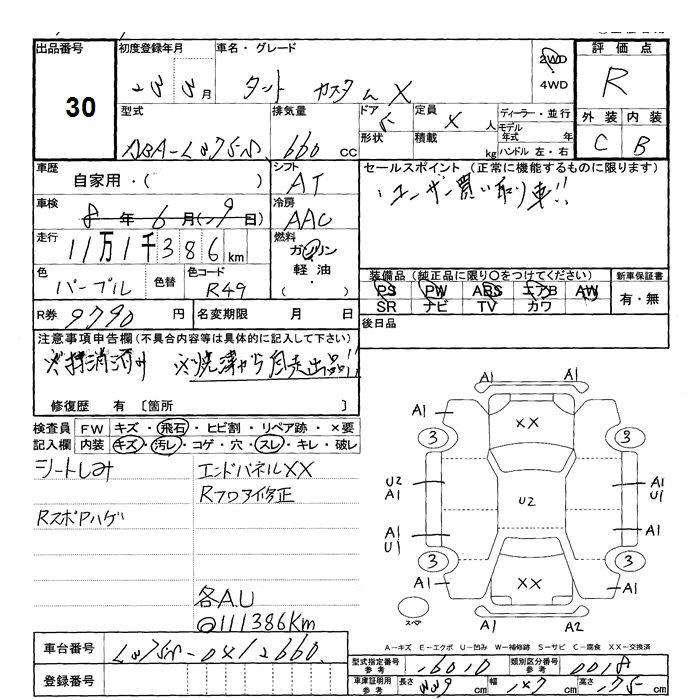 出品番号
30
初度登録年月
車名・グレード
2WD
4WD
評価点
R
月
タント カスタム X
型式
排気量
ドア
定員
ディーラー・並行
モデル年式 年
外装 内装
C B
660 cc
5
人
形状
積載
kg
ハンドル 左・右
車歴
自家用・( )
シフト
AT
セールスポイント (正常に機能するものに限ります)
ユーザー買い取り車!!
車検
8年 6月(-9日)
冷房
AAC
走行
11万1千386km
燃料
ガソリン
軽油・
( )
色
パープル
色替
色コード
R49
装備品(純正品に限り○をつけてください)
PS PW ABS エアB AW
SR ナビ TV カワ
新車保証書
有・無
R券 9790 円
名変期限 月 日
後日品
注意事項申告欄(不具合内容等は具体的に記入して下さい)
※抹消済み ※焼津から自走出品!!
修復歴 有〔箇所 〕
検査員記入欄
FW キズ・飛石・ヒビ割・リペア跡・×要
内装 キズ・汚レ・コゲ・穴・スレ・キレ・破レ
シートしみ
エンドパネルXX
Rフロア修正
RスポPハゲ
各A.U
@111386Km
A1 A1
A1 XX A1
3 3
U2 A1
U2
A1 U1
A1 U1
A1
3 3
A1 XX A1
スペア
A1 A2
A-キズ E-エクボ U-凹み W-補修跡 S-サビ C-腐食 XX-交換済
車台番号
登録番号
型式指定番号 参考
16010
類別区分番号 参考
0018
車庫証明用 参考
長さ 339 cm 幅 147 cm 高さ 175 cm